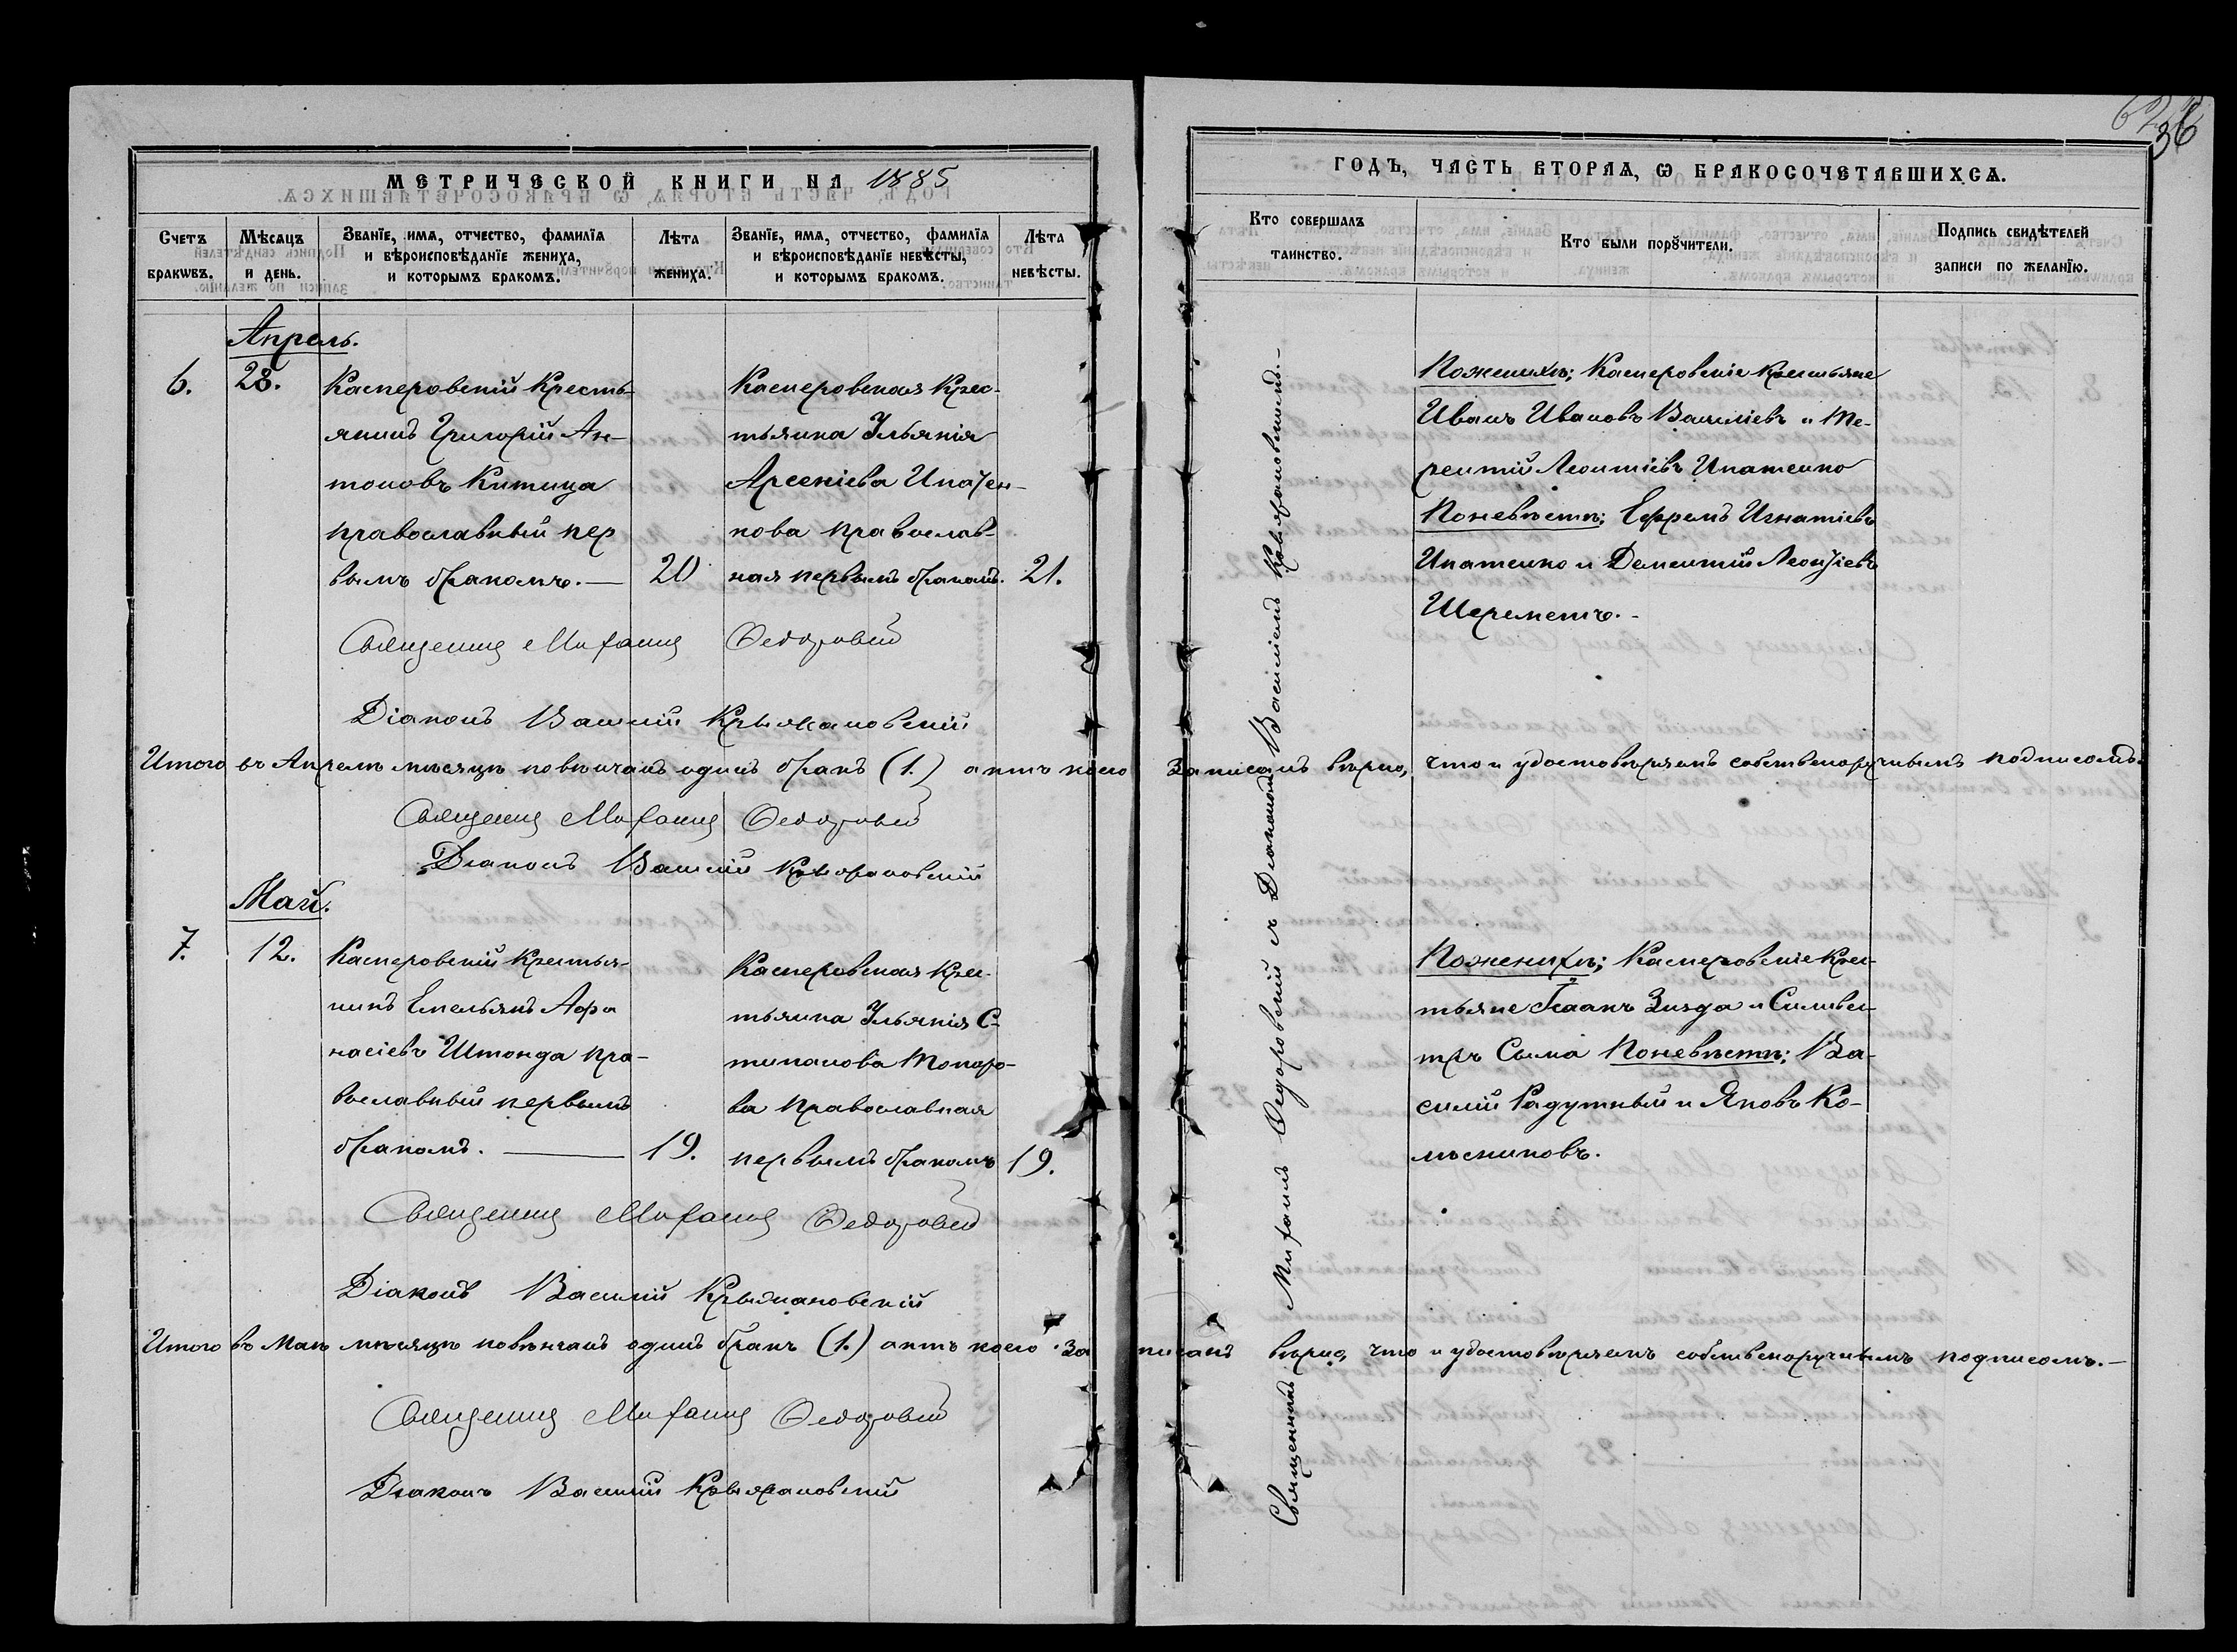 62
36
МЕТРИЧЕСКОЙ КНИГИ НА 1885
ГОДЪ, ЧАСТЬ ВТОРАЯ, Ѡ БРАКОСОЧЕТАВШИХСѦ.
Счетъ браквѡвъ.
Мѣсѧцъ и день.
Званїе, имѧ, отчество, фамилїѧ
и вѣроисповѣданїе жениха,
и которымъ бракомъ.
Лѣта жениха.
Званїе, имѧ, отчество, фамилїѧ
и вѣроисповѣданїе невѣсты,
и которымъ бракомъ.
Лѣта невѣсты.
Кто совершалъ таинство.
Кто были порꙋчители.
Подпись свидѣтелей
записи по желанїю.
Апрель.
6.
28.
Касперовскій Кресть-
янинъ Григорій Ан-
тоновъ Китица
православный пер
вымъ бракомъ. —
20
Касперовская Крес-
тьянка Ульянія
Арсеніева Ипатен-
кова православ-
ная первымъ бракомъ.
21.
Пожених​ѣ; Касперовскіе Крестьяне
Иванъ Ивановъ Василіевъ и Те-
рентій Леонтіевъ Ипатенко
Поневѣстѣ; Ефремъ Игнатіевъ
Ипатенко и Дементій Леонтіевъ
Шереметъ. -
Священникъ Михаилъ Ѳедоровскій съ Діакономъ Василіемъ Крыжановскимъ. -
Священник Михаил Ѳедоровскій
Діаконъ Василій Крыжановскій
Итого въ Апрелѣ мѣсяцѣ повѣнчанъ одинъ бракъ (1.) актъ коего записанъ вѣрно, что и удостовѣряемъ собственоручнымъ подписомъ.
Священник Михаил Ѳедоровскій
Діаконъ Василій Крыжановскій
Май.
7.
12.
Касперовскій Крестья-
нинъ Емельянъ Афа
насіевъ Штонда пра-
вославный первымъ
бракомъ. —
19.
Касперовская Крес-
тьянка Ульянія С-
типанова Топоро-
ва православная
первымъ бракомъ
19.
Пожених​ѣ; Касперовскіе Крес-
тьяне Іоанъ Зизда и Сильвес-
тръ Сыма Поневѣстѣ; Ва-
силій Радутный и Яковъ Ко-
лѣсниковъ.
Священник Михаил Ѳедоровскій
Діаконъ Василій Крыжановскій
Итого въ Маѣ мѣсяцѣ повѣнчанъ одинъ бракъ (1.) актъ коего записанъ вѣрно, что и удостовѣряемъ собственоручнымъ подписомъ. —
Священник Михаил Ѳедоровскій
Діаконъ Василій Крыжановскій